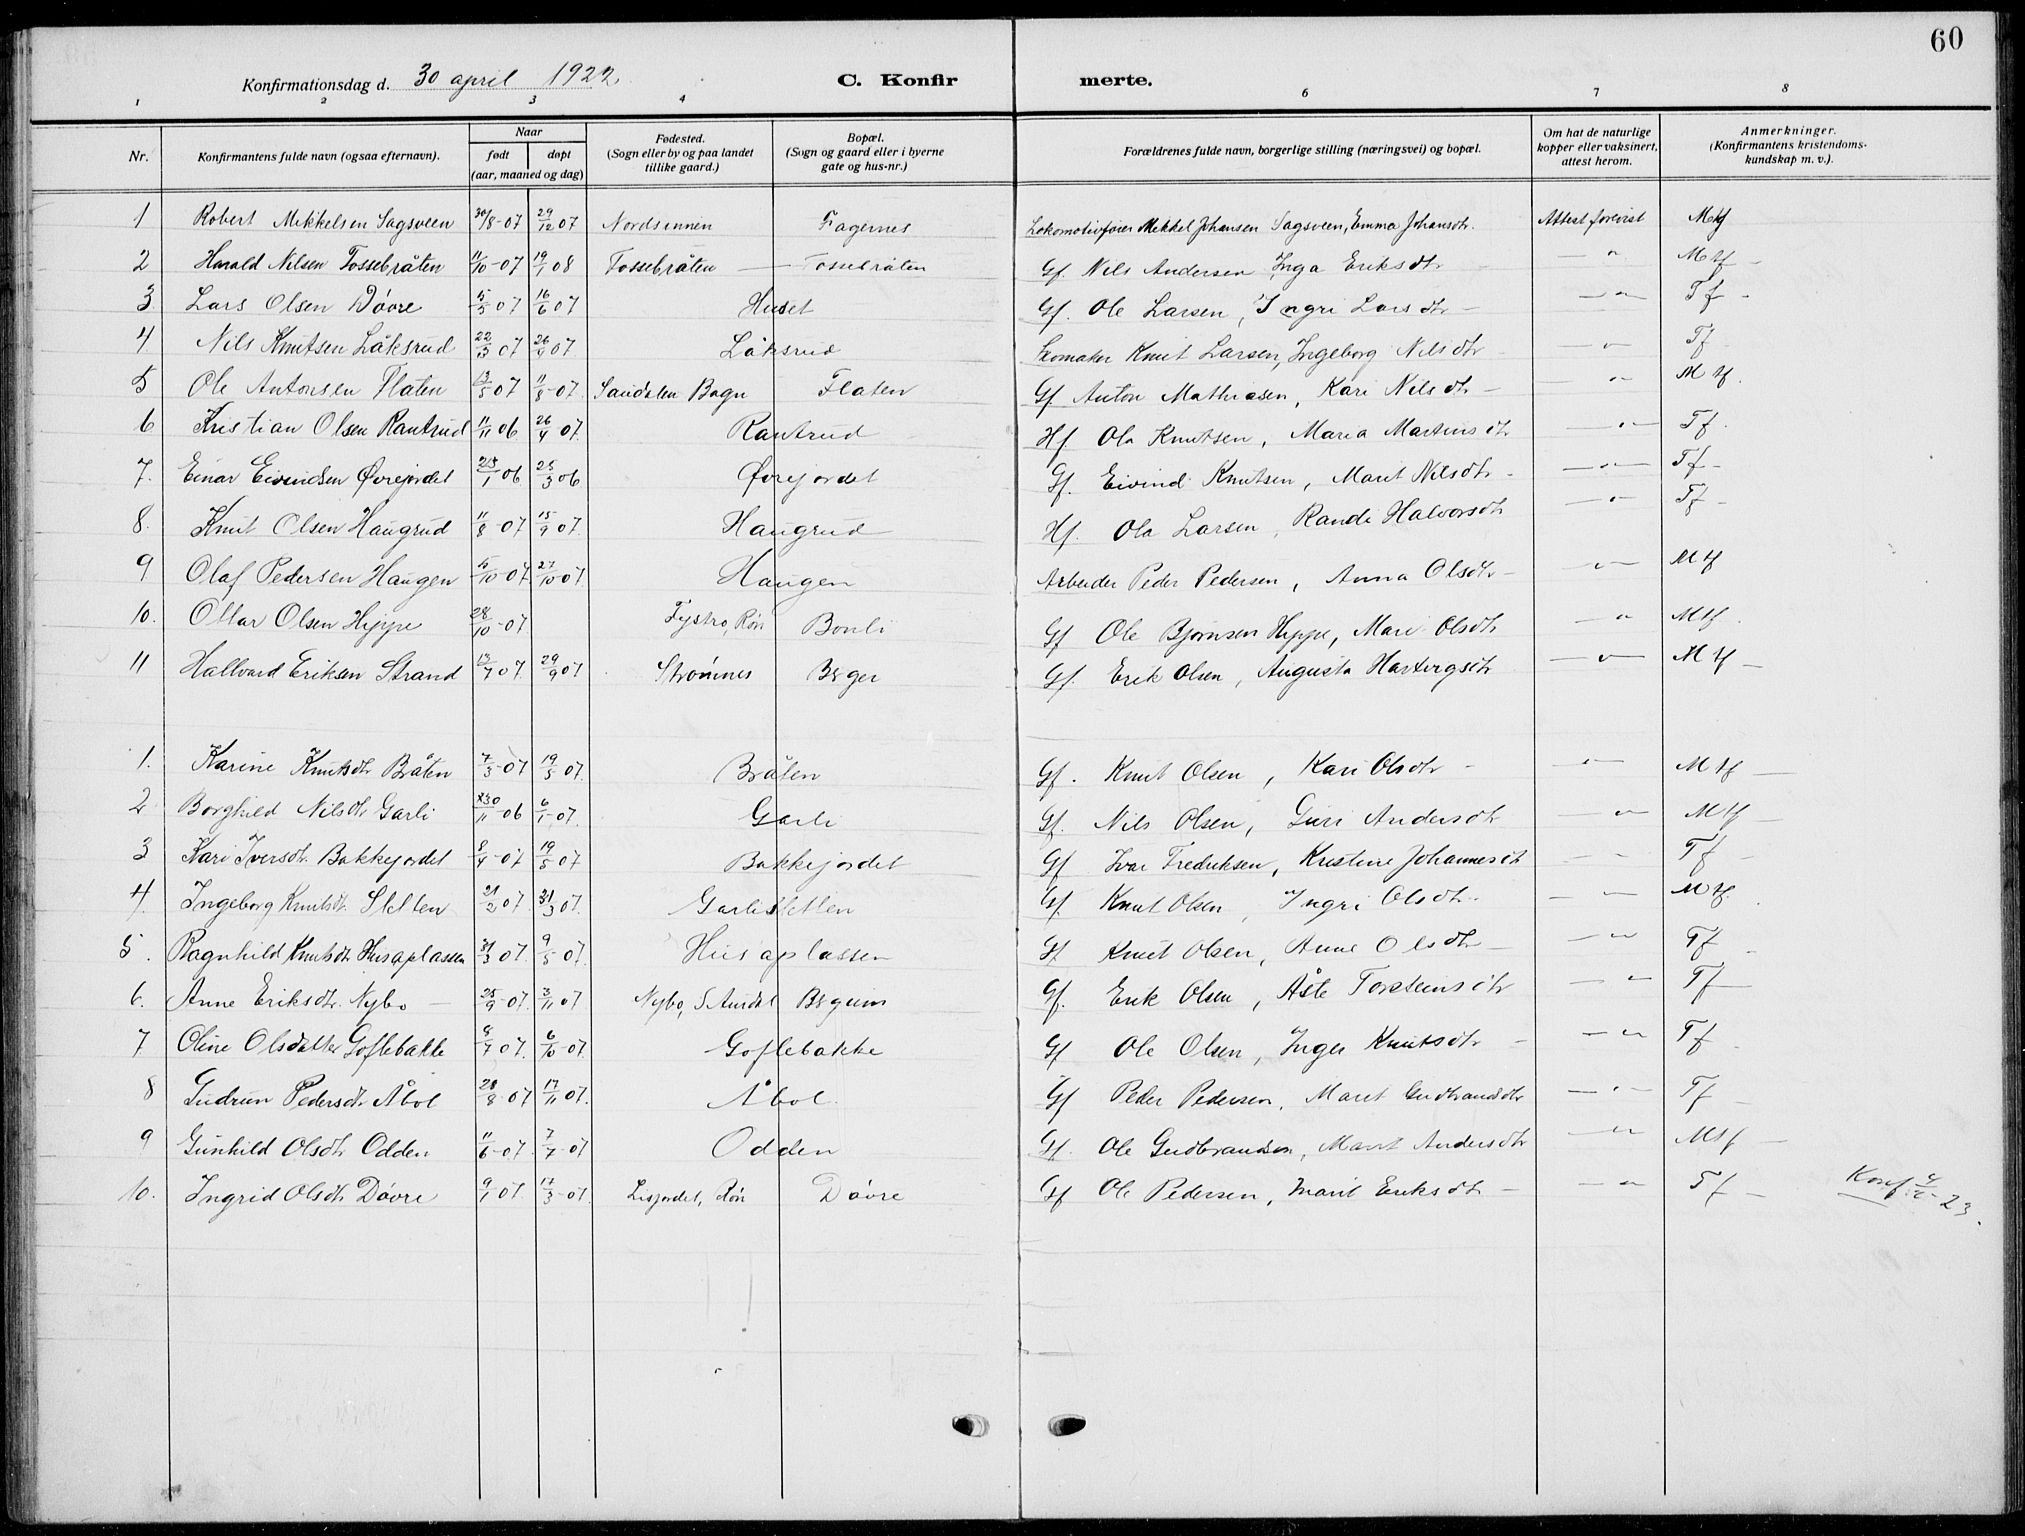 60
Konfirmationsdag d. 30 april 1922. C. Konfirmerte.
1 2 3 4 6 7 8
Nr. Konfirmantens fulde navn (ogsaa efternavn). Naar født døpt (aar, maaned og dag) Fødested. (Sogn eller by og paa landet tillike gaard.) Bopæl. (Sogn og gaard eller i byerne gate og hus-nr.) Forældrenes fulde navn, borgerlige stilling (næringsvei) og bopæl. Om hat de naturlige kopper eller vaksinert, attest herom. Anmerkninger. (Konfirmantens kristendoms-kundskap m. v.).
1 Robert Mikkelsen Sagsveen 30/8-07 29/12 07 Nordsinnen Fagernes Lokomotivfører Mikkel Johansen Sagsveen, Emma Johansdtr. Attest forevist Mtf
2 Harald Nilsen Fossebråten 11/10-07 19/1 08 Fossebråten — Fossebråten Gf. Nils Andersen, Inga Eriksdtr — " — Mtf —
3. Lars Olsen Døvre 5/5 07 16/6 07 Huset Gf. Ole Larsen, Ingri Larsdtr — — " — Tf —
4 Nils Knutsen Låksrud 22/3 07 26/4 07 Låksrud Skomaker Knut Larsen, Ingeborg Nilsdtr — " — Tf —
5 Ole Antonsen Flaten 13/5 07 11/8-07 Sandalen Bagn Flaten Gf. Anton Mathiasen, Kari Nilsdtr — — " — Mtf.
6 Kristian Olsen Rantrud 11/11 06 26/4 07. Rantrud Hf. Ola Knutsen, Maria Martinsdtr — " — Tf.
7. Einar Eivindsen Øvrejordet 23/1 06 25/3 06 Øvrejordet Gf. Eivind Knutsen, Marit Nilsdtr — — " — Tf —
8. Knut Olsen Haugrud 11/8-07 15/9 07. Haugrud Hf. Ola Larsen, Randi Halvorsdtr — " — Tf —
9 Olaf Pedersen Haugen 5/10-07 27/10-07. Haugen Arbeider Peder Pedersen, Anna Olsdtr — — " — Mtf
10. Ollar Olsen Hippe 28/10-07 Fystro, Røn Bonli Gf Ole Bjørnsen Hippe, Mari Olsdtr — " — Mtf.
11 Hallvard Eriksen Strand 13/7 07. 29/9 07 Strømnes Berger Gf. Erik Olsen, Augusta Hartvigsdtr — " — Mtf —
1. Karine Knutsdtr Bråten 7/3-07 19/5 07. Bråten Gf. Knut Olsen, Kari Olsdtr — — " — Mtf —
2 Borghild Nilsdtr Garli 30/11-06 6/1-07. Garli Gf. Nils Olsen, Guri Andersdtr — " — Mtf —
3 Kari Iversdtr. Bakkejordet 8/4-07 19/5 07. Bakkejordet Gf Ivar Fredriksen, Kristine Johannesdt — — Tf
4. Ingeborg Knutsdtr. Sletten 21/2 07. 31/3 07. Garlisletten Gf. Knut Olsen, Ingri Olsdtr. — — Mtf.
5. Ragnhild Knutsdtr Husaplassen 31/3 07. 9/5 07. Husaplassen Gf Knut Olsen, Anne Olsdtr — — " — Tf —
6. Anne Eriksdtr. Nybo — 25/9-07. 3/11 07 Nybo, S Aurdal Begum Gf. Erik Olsen, Åste Torsteinsdtr — " — Tf —
7 Oline Olsdatter Goflebakke 8/7 07. 6/10-07. Goflebakke Gf Ole Olsen, Inger Knutsdtr — — " — Tf —
8 Gudrun Pedersdtr Åbol 28/8-07 17/11 07. Åbol Gf Peder Pedersen, Marit Gudbrandsdtr — " — Tf —
9 Gunhild Olsdtr Odden 11/6-07. 7/7-07 Odden Gf. Ole Gudbrandsen, Marit Andersdtr — " — Mtf —
10. Ingrid Olsdtr Døvre 9/1 07. 17/3-07. Lisjordet, Røn Døvre Gf Ole Pedersen, Marit Eriksdtr — — " — Tf — Konf. 23.